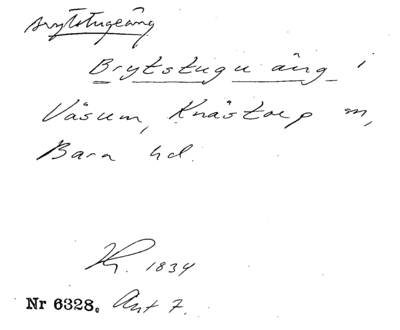 Brytstugeäng
Brytstugu äng i
Väsum, Knästorp m,
Bara hd.
Kr. 1834
Nr 6328. Ant 7.